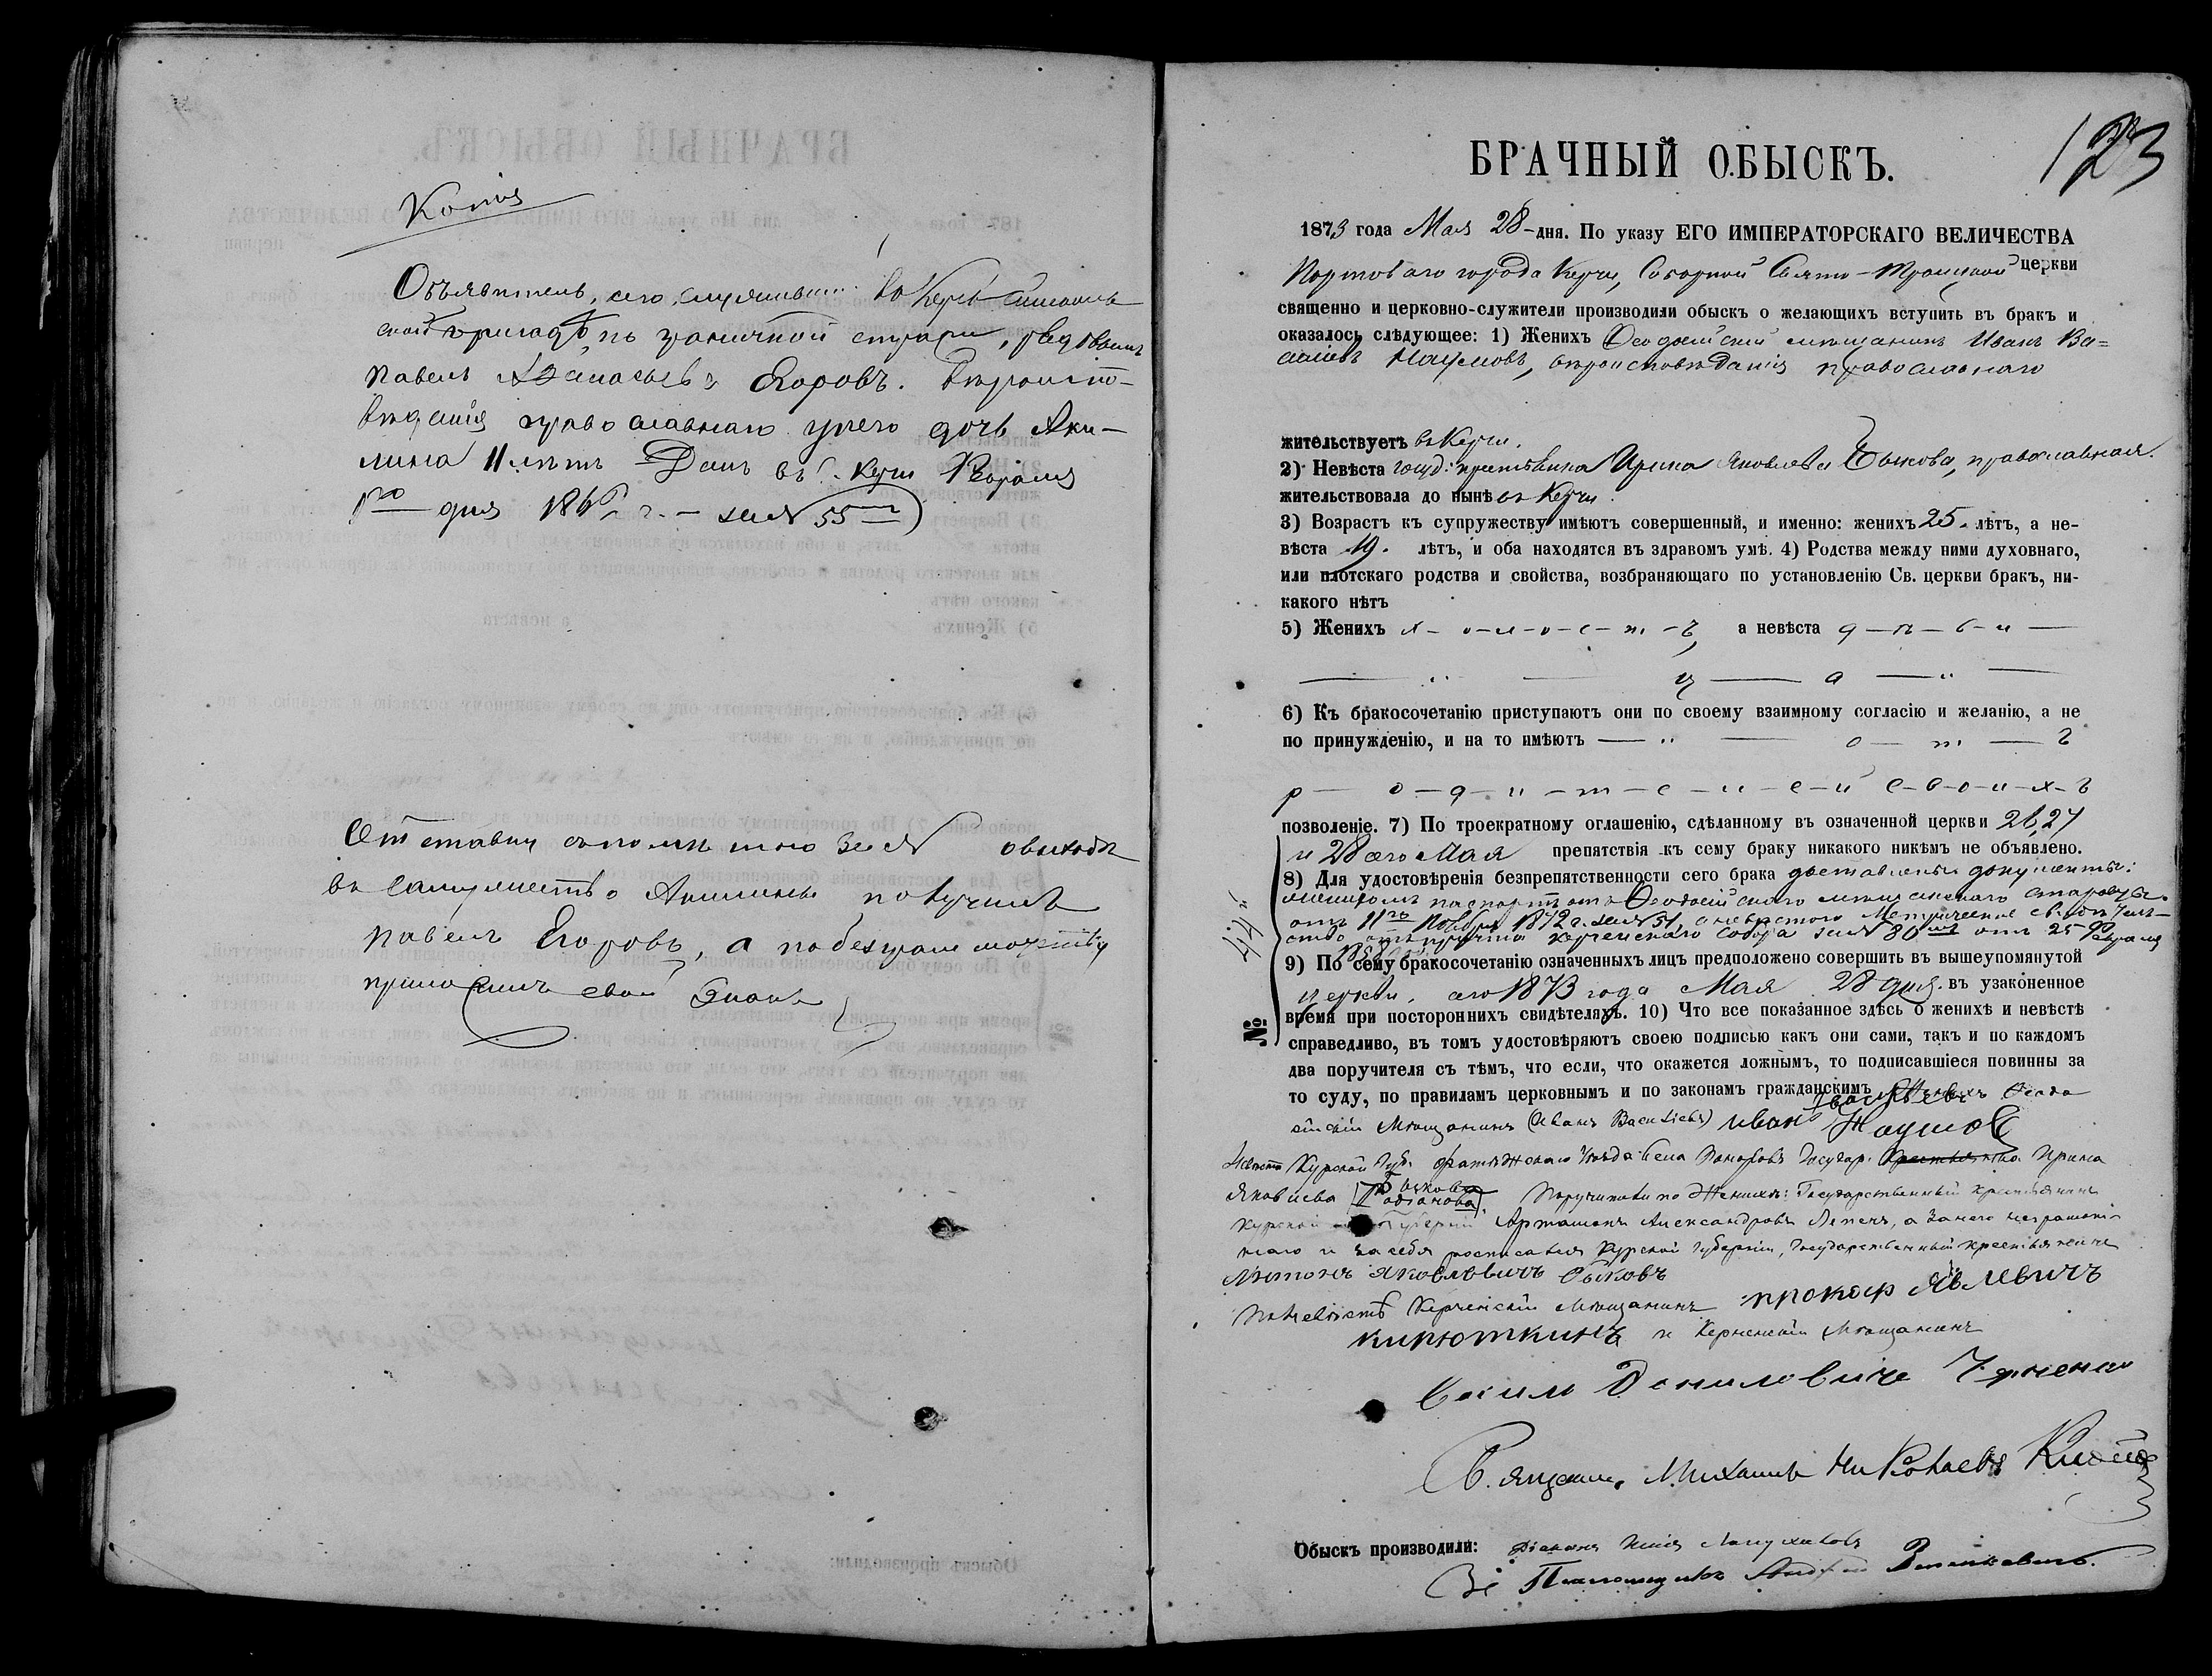 Копія
Объявитель сего, служившій въ Керчь
бригадѣ, по граничной стражи, рядовымъ
Павелъ Афанасьевъ Егоровъ. Вѣроиспо-
вѣданія православнаго у него дочь Аки-
лина 11 лѣтъ Данъ въ г. Керчи Февраля
дня 186 г. – за № 55
Отставку съ помѣткою за № о выходѣ
въ замужество Акилины получилъ
Павелъ Егоровъ, а по безграмотству
приложилъ свой знакъ
123
БРАЧНЫЙ ОБЫСКЪ.
1873 года Мая 28 - дня. По указу ЕГО ИМПЕРАТОРСКАГО ВЕЛИЧЕСТВА
Портоваго города Керчи, Соборной Свято-Троицкой церкви
священно и церковно-служители производили обыскъ о желающихъ вступить въ бракъ и
оказалось слѣдующее: 1) Женихъ Ѳеодосійскій мѣщанинъ Иванъ Ва=
сильевъ Наумовъ, вѣроисповѣданія православнаго
жительствуетъ въ Керчи.
2) Невѣста госуд: крестьянка Ирина Яковлева Быкова, православная.
жительствовала до нынѣ въ Керчи.
3) Возрастъ къ супружеству имѣютъ совершенный, и именно: женихъ 25. лѣтъ, а не-
вѣста 19. лѣтъ, и оба находятся въ здравомъ умѣ. 4) Родства между ними духовнаго,
или плотскаго родства и свойства, возбраняющаго по установленію Св. церкви бракъ, ни-
какого нѣтъ
5) Женихъ х - о - л - о - с - т - ъ, а невѣста д - ѣ - в - и -
ц - а
6) Къ бракосочетанію приступаютъ они по своему взаимному согласію и желанію, а не
по принужденію, и на то имѣютъ о - т - ъ
р - о - д - и - т - е - л - е - й с - в - о - и - х - ъ
позволеніе. 7) По троекратному оглашенію, сдѣланному въ означенной церкви 26, 27
и 28 сего Мая препятствія къ сему браку никакого никѣмъ не объявлено.
8) Для удостовѣренія безпрепятственности сего брака доставлены документы:
женихомъ паспортъ отъ Ѳеодосійскаго мѣщанскаго старосты
отъ 11го Ноября 1872 г. за № 51, а невѣстою Метрическое свидѣтель-
ство отъ причта Керченскаго Собора за № 80 отъ 25 Февраля
9) По сему бракосочетанію означенныхъ лицъ предположено совершить въ вышеупомянутой
церкви. сего 1873 года Мая 28 дня. въ узаконенное
№ 44
время при постороннихъ свидѣтеляхъ. 10) Что все показанное здѣсь о женихѣ и невѣстѣ
справедливо, въ томъ удостовѣряютъ своею подписью какъ они сами, такъ и по каждомъ
два поручителя съ тѣмъ, что если, что окажется ложнымъ, то подписавшіеся повинны за
то суду, по правиламъ церковнымъ и по законамъ гражданскимъ Женихъ Ѳеодо
сійскій Мѣщанинъ (Иванъ Васильевъ) Иванъ Васильевъ Наумовъ
Невѣста Курской Губ. Фатежскаго Уѣзда Государ. Крестьянка Ирина
Яковлева Быкова. Поручители по Женихѣ: Государственный крестьянинъ
Курской Губерніи Артамонъ Александровъ, а за него неграмот-
наго и за себя росписался Курской Губерніи, Государственный крестьянинъ
Антонъ Яковлевичъ Быковъ
По невѣстѣ Керченскій Мѣщанинъ Прокоф Яковлевичъ
Кирюткинъ и Керченскій Мѣщанинъ
Василь Даниловичъ
Священн. Михаилъ Николаевъ
Обыскъ производили: Діаконъ
Андрей